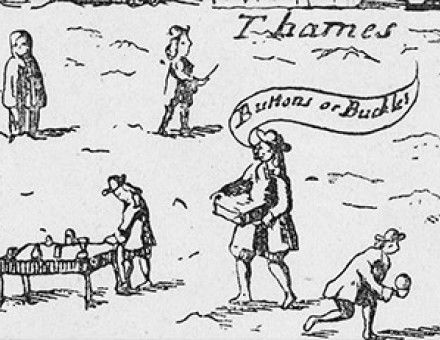 Thames
Buttons or Buckles